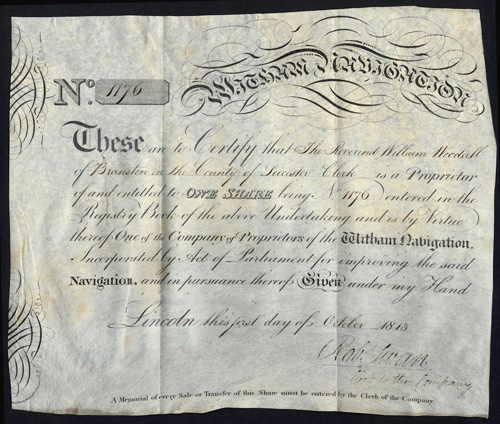 WITHAM NAVIGATION
No. 1176
These are to Certify that The Reverend William Woodall
of Branston in the County of Leicester Clerk is a Proprietor
of and entitled to ONE SHARE being No 1176 entered in the
Registry Book of the above Undertaking and is by Virtue
thereof One of the Company of Proprietors of the Witham Navigation,
Incorporated by Act of Parliament for improving the said
Navigation, and in pursuance thereof Given under my Hand
Lincoln this first day of October 1813
Robt Swan
Clerk to the Company
A Memorial of every Sale or Transfer of this Share must be entered by the Clerk of the Company.